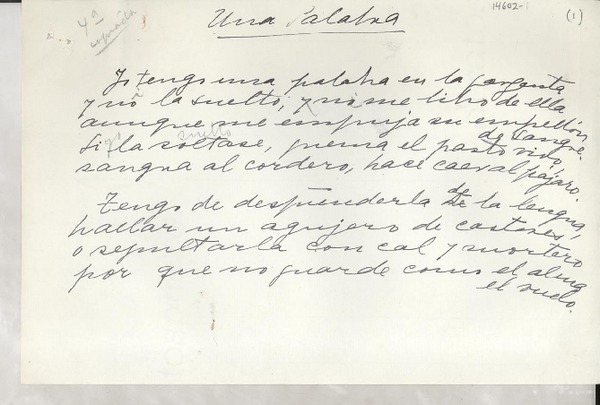 14602-1
(1)
4ª
copiada
Una Palabra
Yo tengo una palabra en la garganta
y no la suelto, y no me libro de ella
aunque me empuja su empellón
de sangre.
suelto
Si la soltase, quema el pasto vivo,
sangra al cordero, hace caer al pájaro.
Tengo de desprenderla de la lengua,
hallar un agujero de castores,
o sepultarla con cal y mortero
por que no guarde como el alma
el vuelo.